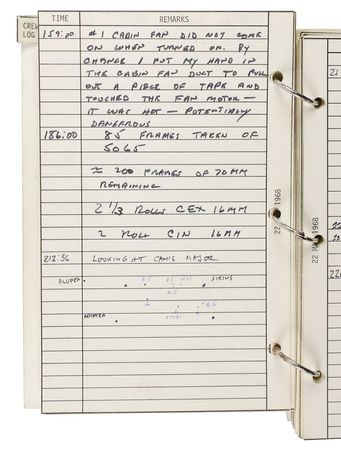 CREW
LOG
TIME REMARKS
159:00 #1 CABIN FAN DID NOT COME
ON WHEN TURNED ON. BY
CHANCE I PUT MY HAND IN
THE CABIN FAN DUCT TO PULL
OUT A PIECE OF TAPE AND
TOUCHED THE FAN MOTOR —
IT WAS HOT — POTENTIALLY
DANGEROUS
186:00 85 FRAMES TAKEN OF
SO65
≈ 200 FRAMES OF 70MM
REMAINING
2 1/3 ROLLS CEX 16MM
2 ROLL CIN 16MM
212:56 LOOKING AT CANIS MAJOR
ALUDRA SIRIUS
ADHARA
22 1968
22 MAY 1968
21